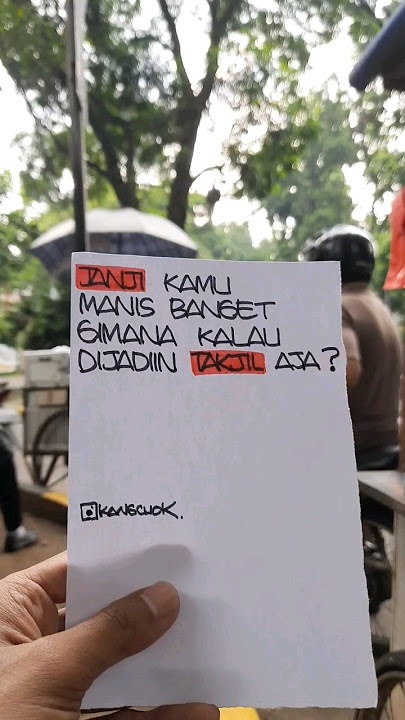 JANJI KAMU
MANIS BANGET
GIMANA KALAU
DIJADIIN TAKJIL AJA?
KANGCHOK.